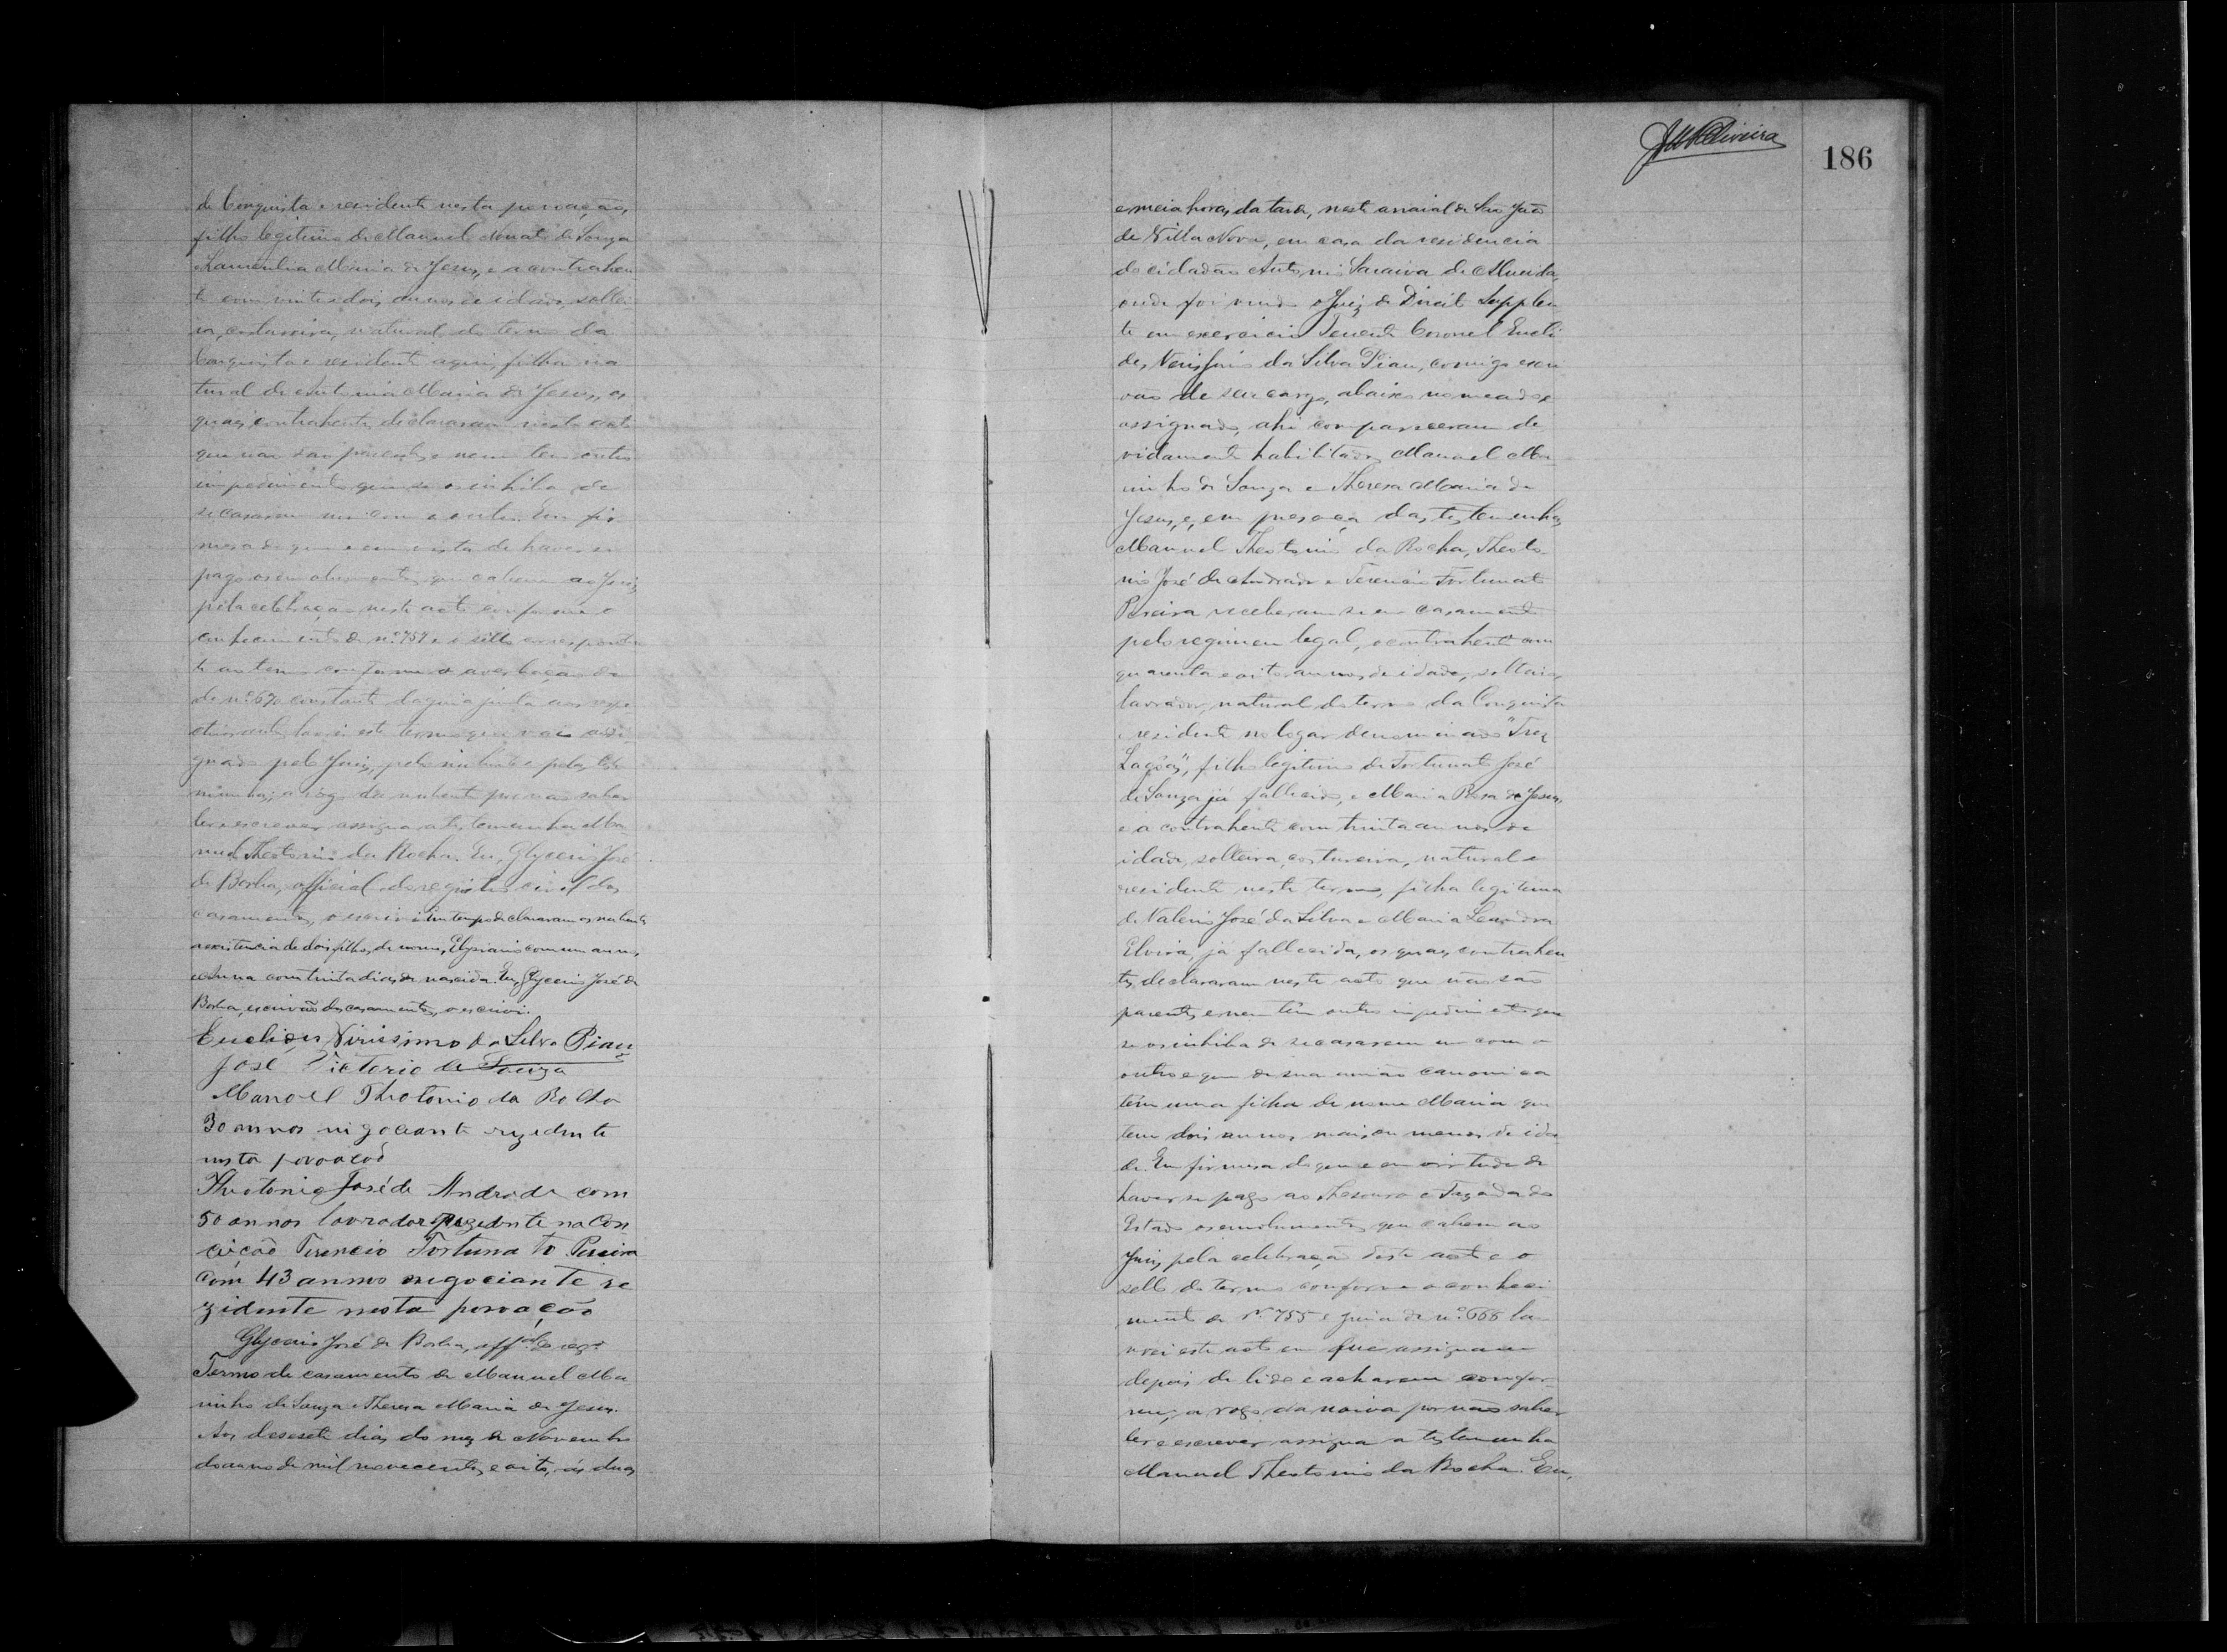 de Conquista e residente nesta povoação,
filho legitimo de Manuel Nonato de Souza
Maria de Jesus, e a contrahen
te com vinte e dois annos de idade, soltei
ra, costureira, natural do termo da
Conquista e residente aqui, filha na
tural de Antonia Maria de Jesus, os
quaes contrahentes declararam neste acto
que não são parentes e nem tem outro
impedimento que os inhiba de
se casarem um com o outro. Em fir
mesa do que e em vista de haver se
pago os emolumentos que cabem ao Juiz
pela celebração neste acto conforme o
conhecimento de nº 757 e o sello correspondn
te ao termo conforme a averbação da
de nº 670 constante da guia junta aos
lavrei este termo que vai assi
gnado pelo Juiz, pelo nubente e pelas teste
munhas; a rogo da nubente por não saber
ler e escrever assigna a testemunha Ma
nuel Theotonio da Rocha. Eu, Glycerio José
de Borba, official do registro civil dos
casamentos, o escrivi. Em tempo declararam os nubentes
a existencia de dois filhos, de nomes, Elysiario com um anno,
e Anna com trinta dias de nascida. Eu, Glycerio José de
Borba, escrivão dos casamentos, o escrivi.
Euclides Virissimo da Silva Piau
José Victorio de Souza
Manoel Theotonio da Rocha
30 annos nigociante rezidente
nesta povoacão
Theotonio José de Andrade com
50 annos lavrador Rezidente na Con
ceicão Terencio Fortunato Pereira
Com 43 annos negociante re
zidente nesta povoação
Glycerio José de Borba, offal de regº
Termo de casamento de Manuel Ma
rinho de Souza e Theresa Maria de Jesus.
Aos desesete dias do mez de Novembro
do anno de mil novecentos e oito, ás duas
186
e meia horas da tarde, neste arraial de São João
de Villa Nova, em casa da residencia
do cidadão Antonio Saraiva de Almeida,
onde foi vindo o Juiz de Direito Supplen
te em exercicio Tenente Coronel Eucli
des Verissimo da Silva Piau, comigo escri
vão de seu cargo, abaixo nomeado e
assignado, ahi compareceram de
vidamente habilitados Manuel Ma
rinho de Souza e Theresa Maria de
Jesus, e, em presença das testemunhas
Manuel Theotonio da Rocha, Theoto
nio José de Andrade e Terencio Fortunato
Pereira receberam se em casamento
pelo regimen legal, o contrahente com
quarenta e oito annos de idade, solteiro,
lavrador, natural do termo da Conquista
e residente no logar denominado "Trez
Lagôas", filho legitimo de Fortunato José
de Souza já fallecido, e Maria Rosa de Jesus,
e a contrahente com trinta annos de
idade, solteira, costureira, natural e
residente neste termo, filha legitima
de Valerio José da Silva e Maria Leandra
Elvira, já fallecida, os quaes contrahen
tes declararam neste acto que não são
parentes e nem têm outro impedimeto que
se os inhiba de se casarem um com o
outro e que de sua união canonica
têm uma filha de nome Maria que
tem dois annos mais ou menos de ida
de. Em firmesa do que e em virtude de
haver se pago ao Thesouro e Fazenda do
Estado os emolumentos que cabem ao
Juiz pela celebração deste acto e o
sello do termo conforme o conheci
mento de Nº 755 e guia de nº 666 la
vrei este acto em que assignam
depois de lido e acharem confor
me, a rogo da noiva por não saber
ler e escrever assigna a testemunha
Manuel Theotonio da Rocha. Eu,